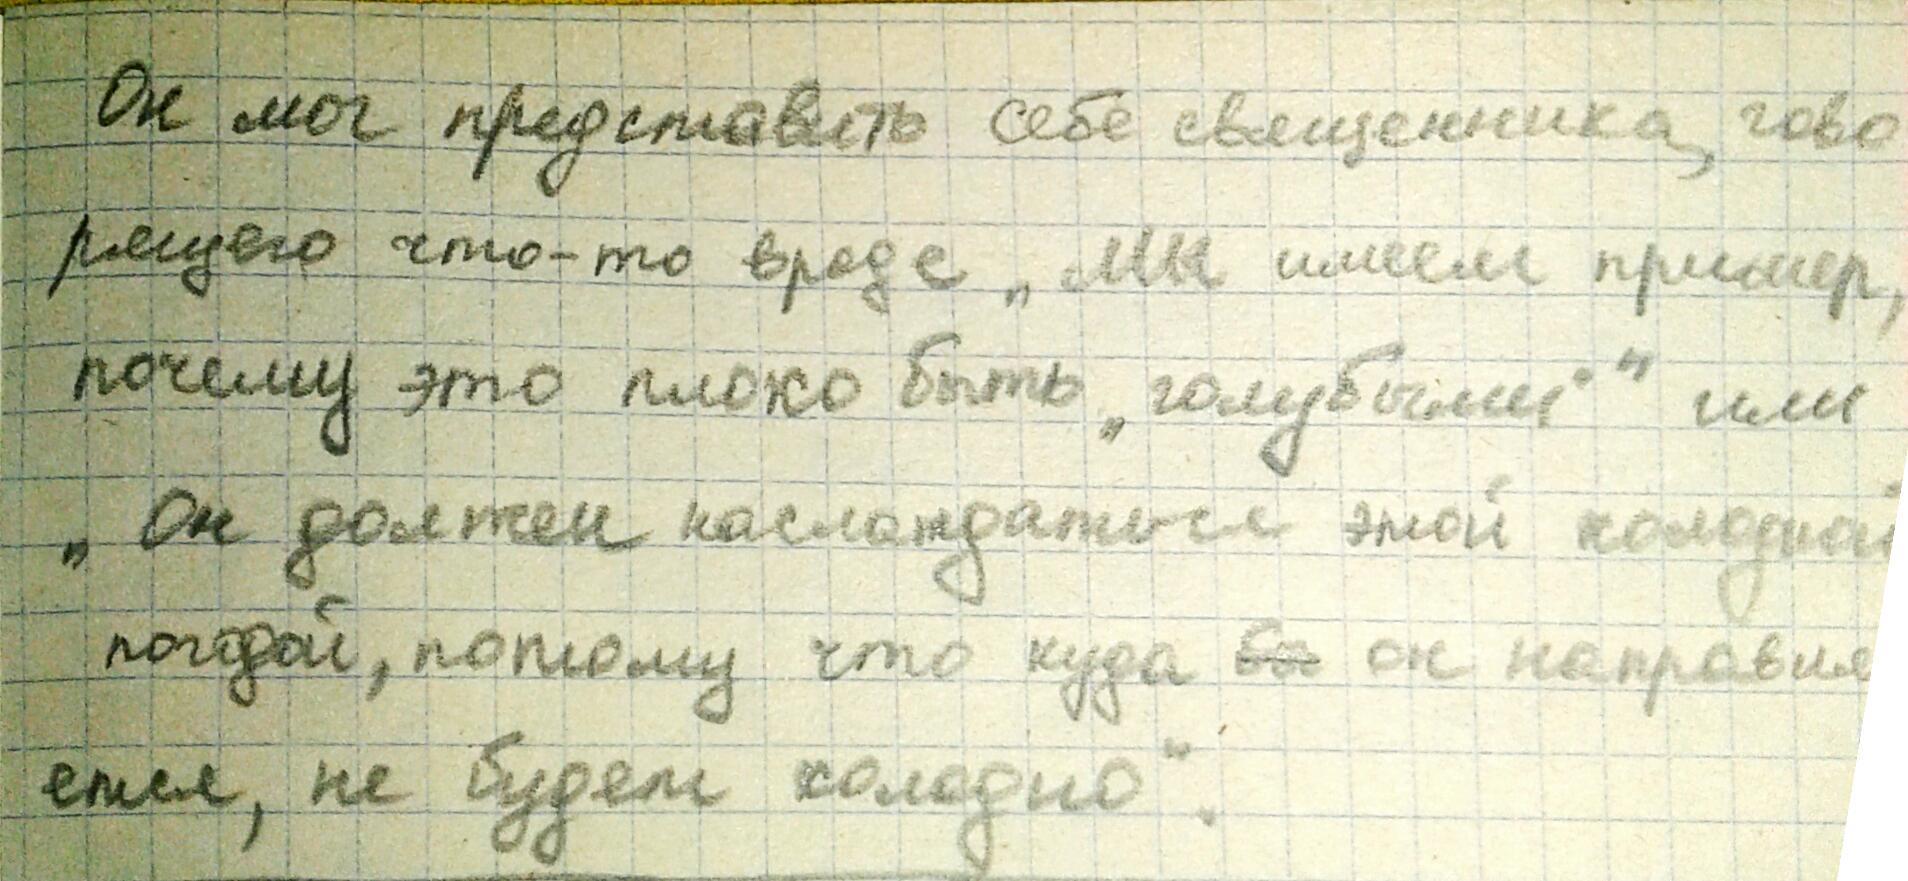 Он мог представить себе священника, гово
рящего что-то вроде „Мы имеем пример,
почему это плохо быть „голубыми“ или
„Он должен наслаждаться этой холодной
погодой, потому что куда бы он направля
ется, не будет холодно“.